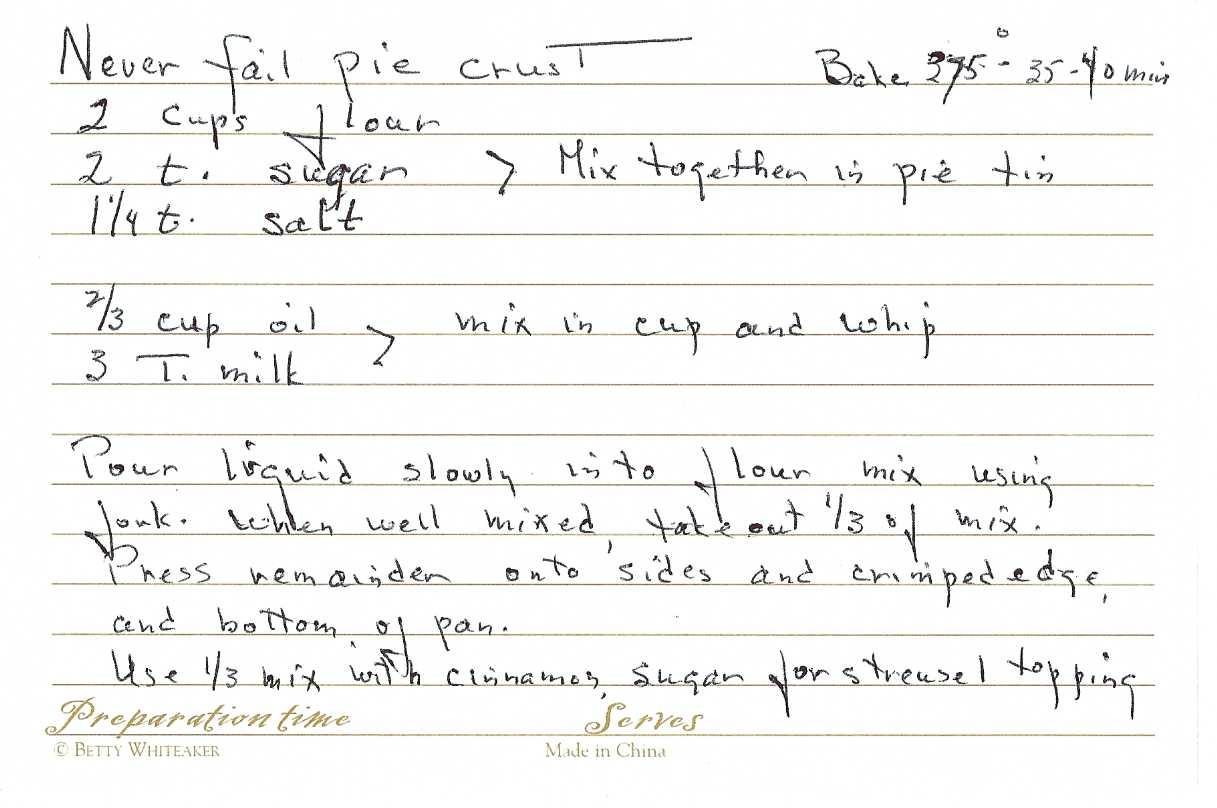 Never fail pie crust Bake 375° - 35-40 min
2 cups flour
2 t. sugar > Mix together in pie tin
1 1/4 t. salt
2/3 cup oil > mix in cup and whip
3 T. milk
Pour liquid slowly into flour mix using
fork. When well mixed, take out 1/3 of mix.
Press remainder onto sides and crimped edge,
and bottom of pan.
Use 1/3 mix with cinnamon, sugar for streusel topping
Preparation time Serves
© BETTY WHITEAKER Made in China